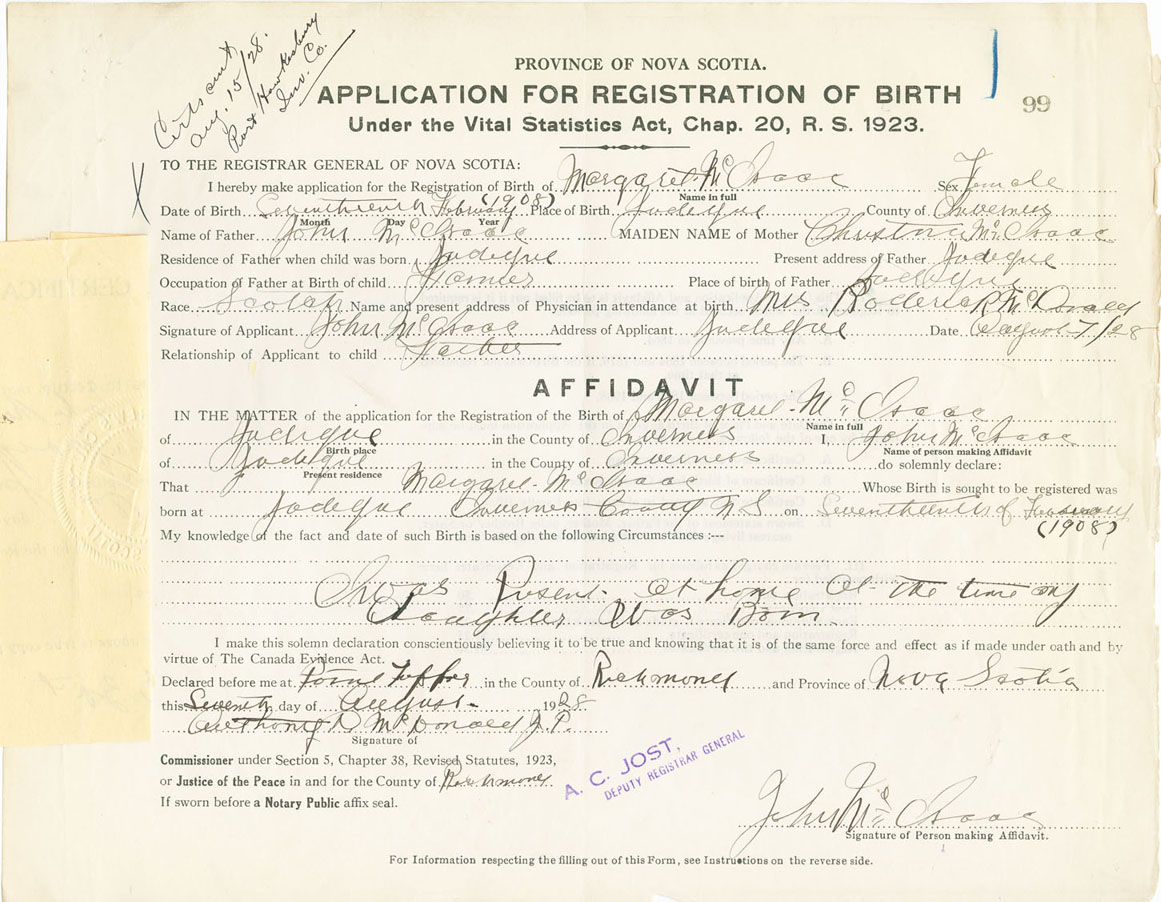 Cert sent
Aug. 15/28.
Port Hawkesbury
Inv. Co.
PROVINCE OF NOVA SCOTIA.
99
APPLICATION FOR REGISTRATION OF BIRTH
Under the Vital Statistics Act, Chap. 20, R. S. 1923.
X
TO THE REGISTRAR GENERAL OF NOVA SCOTIA:
I hereby make application for the Registration of Birth of Margaret Mc Isaac Sex Female
Name in full
Date of Birth Seventeenth February (1908) Place of Birth Judique County of Inverness
Month Day Year
Name of Father John Mc Isaac MAIDEN NAME of Mother Christina Mc Isaac
Residence of Father when child was born Judique Present address of Father Judique
Occupation of Father at Birth of child Farmer Place of birth of Father Judique
Race Scotch Name and present address of Physician in attendance at birth Mrs Roderick Mc Donald
Signature of Applicant John Mc Isaac Address of Applicant Judique Date August 7/28
Relationship of Applicant to child Father
AFFIDAVIT
IN THE MATTER of the application for the Registration of the Birth of Margaret Mc Isaac
Name in full
of Judique in the County of Inverness I, John Mc Isaac
Birth place Name of person making Affidavit
of Judique in the County of Inverness do solemnly declare:
Present residence
That Margaret Mc Isaac Whose Birth is sought to be registered was
born at Judique Inverness County N.S. on Seventeenth of February
(1908)
My knowledge of the fact and date of such Birth is based on the following Circumstances :---
I was Present at home at the time my
Daughter Was Born.
I make this solemn declaration conscientiously believing it to be true and knowing that it is of the same force and effect as if made under oath and by
virtue of The Canada Evidence Act.
Declared before me at Point Tupper in the County of Richmond and Province of Nova Scotia
this Seventh day of August 1928
Anthony D McDonald J.P.
Signature of
Commissioner under Section 5, Chapter 38, Revised Statutes, 1923,
or Justice of the Peace in and for the County of Richmond
If sworn before a Notary Public affix seal.
A. C. JOST,
DEPUTY REGISTRAR GENERAL
John Mc Isaac
Signature of Person making Affidavit.
For Information respecting the filling out of this Form, see Instructions on the reverse side.